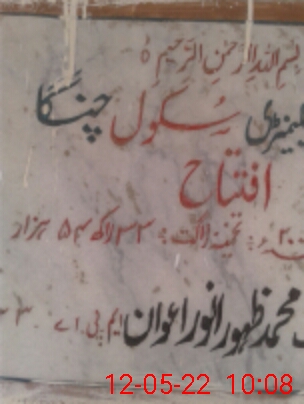 بسم اللہ الرحمن الرحیم ہ
سکول چنگا
افتتاح
تخمینہ لاگت : ۳۳ لاکھ ۵۴ ہزار
محمد ظہور انور اعوان ایم پی اے
12-05-22 10:08